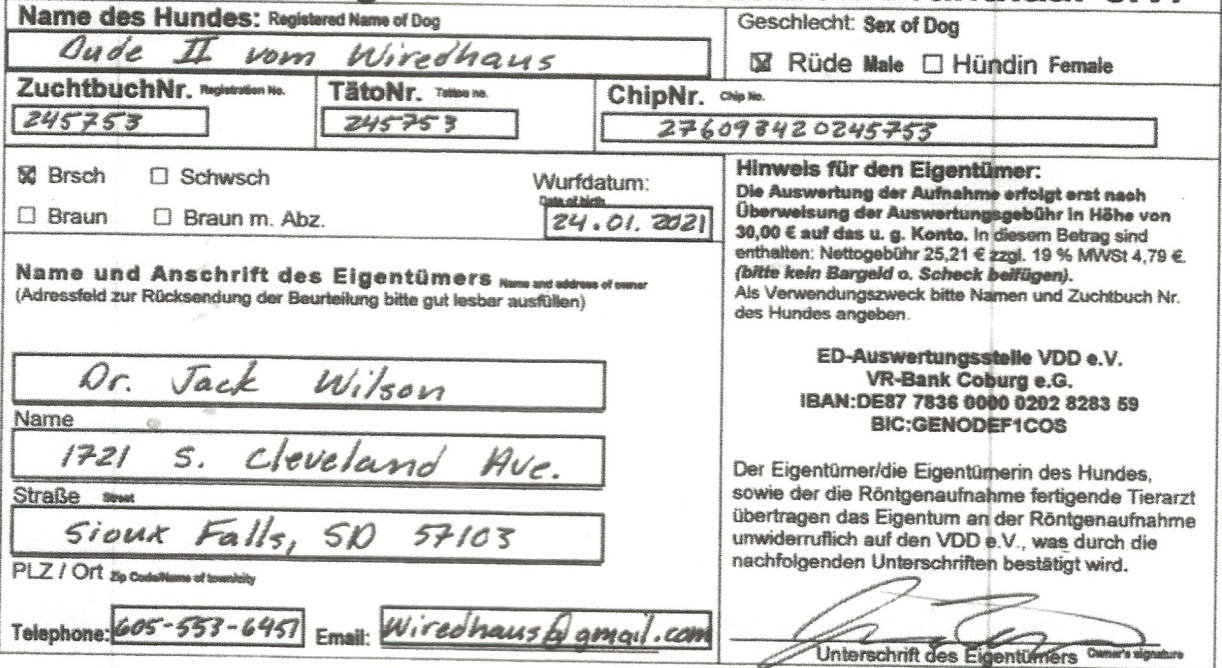 Name des Hundes: Registered Name of Dog
Dude II vom Wiredhaus
Geschlecht: Sex of Dog
☒ Rüde Male ☐ Hündin Female
ZuchtbuchNr. Registration No.
245753
TätoNr. Tattoo no.
245753
ChipNr. Chip No.
276098420245753
☒ Brsch ☐ Schwsch
☐ Braun ☐ Braun m. Abz.
Wurfdatum:
Date of birth
24.01.2021
Name und Anschrift des Eigentümers Name and address of owner
(Adressfeld zur Rücksendung der Beurteilung bitte gut lesbar ausfüllen)
Dr. Jack Wilson
Name
1721 S. Cleveland Ave.
Straße Street
Sioux Falls, SD 57103
PLZ / Ort Zip Code/Name of town/city
Telephone: 605-553-6451 Email: Wiredhaus@gmail.com
Hinweis für den Eigentümer:
Die Auswertung der Aufnahme erfolgt erst nach
Überweisung der Auswertungsgebühr in Höhe von
30,00 € auf das u. g. Konto. In diesem Betrag sind
enthalten: Nettogebühr 25,21 € zzgl. 19 % MWSt 4,79 €.
(bitte kein Bargeld o. Scheck beifügen).
Als Verwendungszweck bitte Namen und Zuchtbuch Nr.
des Hundes angeben.
ED-Auswertungsstelle VDD e.V.
VR-Bank Coburg e.G.
IBAN:DE87 7836 0000 0202 8283 59
BIC:GENODEF1COS
Der Eigentümer/die Eigentümerin des Hundes,
sowie der die Röntgenaufnahme fertigende Tierarzt
übertragen das Eigentum an der Röntgenaufnahme
unwiderruflich auf den VDD e.V., was durch die
nachfolgenden Unterschriften bestätigt wird.
Unterschrift des Eigentümers Owner's signature